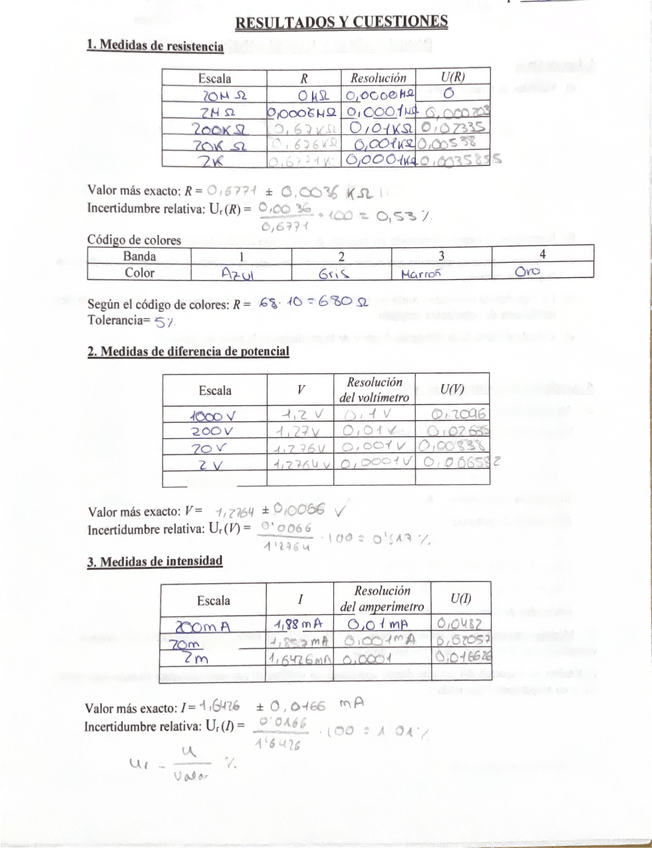 RESULTADOS Y CUESTIONES
1. Medidas de resistencia
Escala R Resolución U(R)
20M Ω 0MΩ 0
2M Ω 0,0006MΩ 0,0001MΩ
200K Ω 0,67KΩ 0,01KΩ 0,07335
20K Ω 0,676KΩ 0,001KΩ 0,00538
2K 0,6771K 0,0035855
Valor más exacto: R = 0,6771 ± 0,0036 KΩ
Incertidumbre relativa: Ur (R) = 0,0036 / 0,6771 · 100 = 0,53 %
Código de colores
Banda 1 2 3 4
Color Azul Gris Marrón Oro
Según el código de colores: R = 68 · 10 = 680 Ω
Tolerancia= 5%
2. Medidas de diferencia de potencial
Escala V Resolución del voltímetro U(V)
1000 V 1,2 V 0,1 V 0,2096
200V 1,27V 0,01V 0,02635
20 V 1,276V 0,001V 0,00838
2 V 1,2764V 0,0001V
Valor más exacto: V = 1,2764 ± 0,0066 V
Incertidumbre relativa: Ur (V) = 0'0066 / 1'2764 · 100 = 0'517 %
3. Medidas de intensidad
Escala I Resolución del amperímetro U(I)
200mA 1,88 mA 0,01 mA 0,0482
20m 0,001mA
2m 1,6426mA 0,0001 0,016626
Valor más exacto: I = 1,6426 ± 0,0166 mA
Incertidumbre relativa: Ur (I) = 0'0166 / 1'6426 · 100 = 1 01 %
Ur = U / Valor %